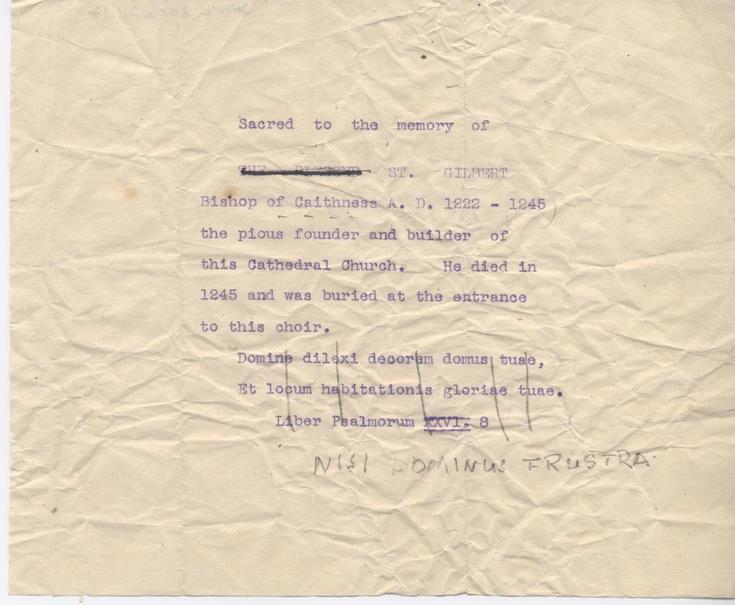 Sacred to the memory of
THE BLESSED ST. GILBERT
Bishop of Caithness A. D. 1222 - 1245
the pious founder and builder of
this Cathedral Church. He died in
1245 and was buried at the entrance
to this choir.
Domine dilexi decorem domus tuae,
Et locum habitationis gloriae tuae.
Liber Psalmorum XXVI. 8
NISI DOMINUS FRUSTRA